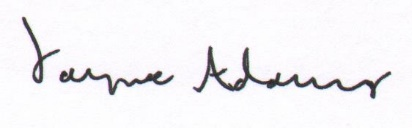 Jayne Adams